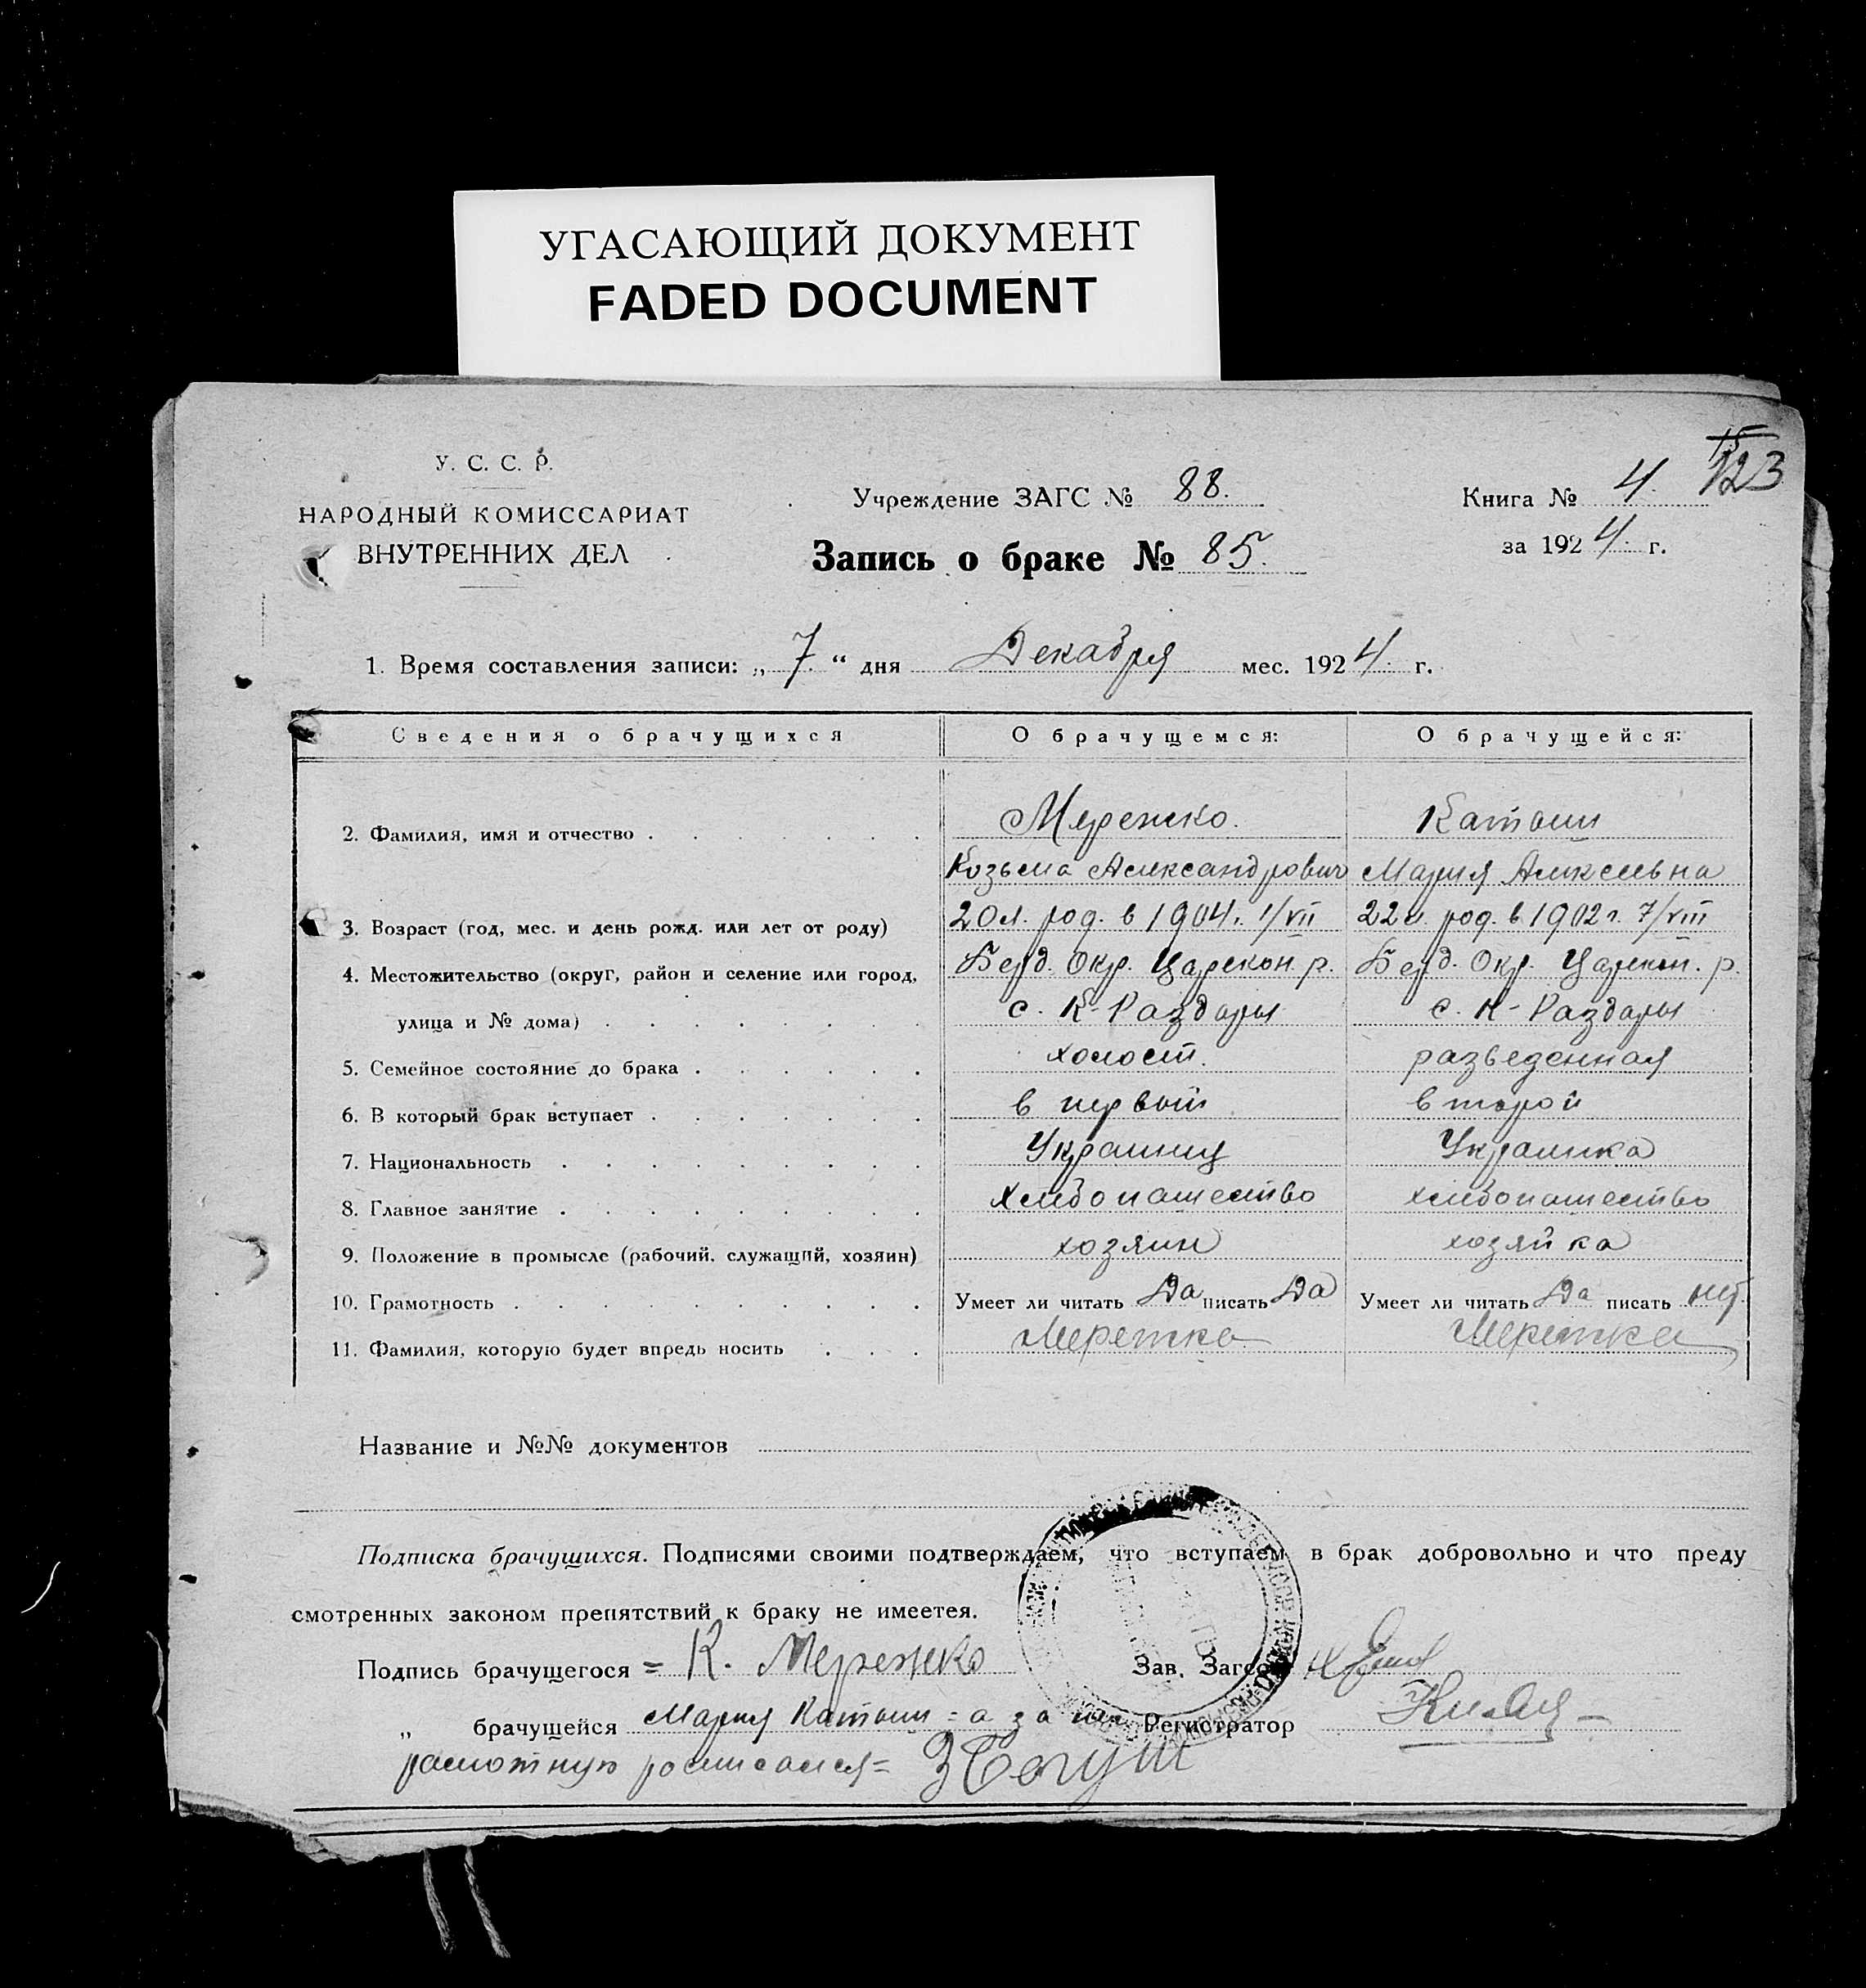 УГАСАЮЩИЙ ДОКУМЕНТ
FADED DOCUMENT
У. С. С. Р.
НАРОДНЫЙ КОМИССАРИАТ
ВНУТРЕННИХ ДЕЛ
Учреждение ЗАГС № 88.
Запись о браке № 85.
Книга № 4. 123
за 1924. г.
1. Время составления записи: „ 7. “ дня Декабря мес. 1924. г.
Сведения о брачущихся О брачущемся: О брачущейся:
2. Фамилия, имя и отчество Мережко.
Козьма Александрович Мария Алексеевна
3. Возраст (год, мес. и день рожд. или лет от роду) 20 л. род. в 1904 г. 1/VII 22 л. род. в 1902 г. 7/VIII
4. Местожительство (округ, район и селение или город, Берд. Окр. Царекон. р. Берд. Окр. Царекон. р.
улица и № дома) с. К-Раздоры с. К-Раздоры
5. Семейное состояние до брака холост. разведенная
6. В который брак вступает в первый второй
7. Национальность Украинец Украинка
8. Главное занятие хлебопашество хлебопашество
9. Положение в промысле (рабочий, служащий, хозяин) хозяин хозяйка
10. Грамотность Умеет ли читать Да писать Да Умеет ли читать Да писать нет
11. Фамилия, которую будет впредь носить Мережко Мережко
Название и №№ документов
Подписка брачущихся. Подписями своими подтверждаем, что вступаем в брак добровольно и что преду
смотренных законом препятствий к браку не имеетея.
Подпись брачущегося = К. Мережко Зав. Загсом
„ брачущейся Мария = а за Регистратор